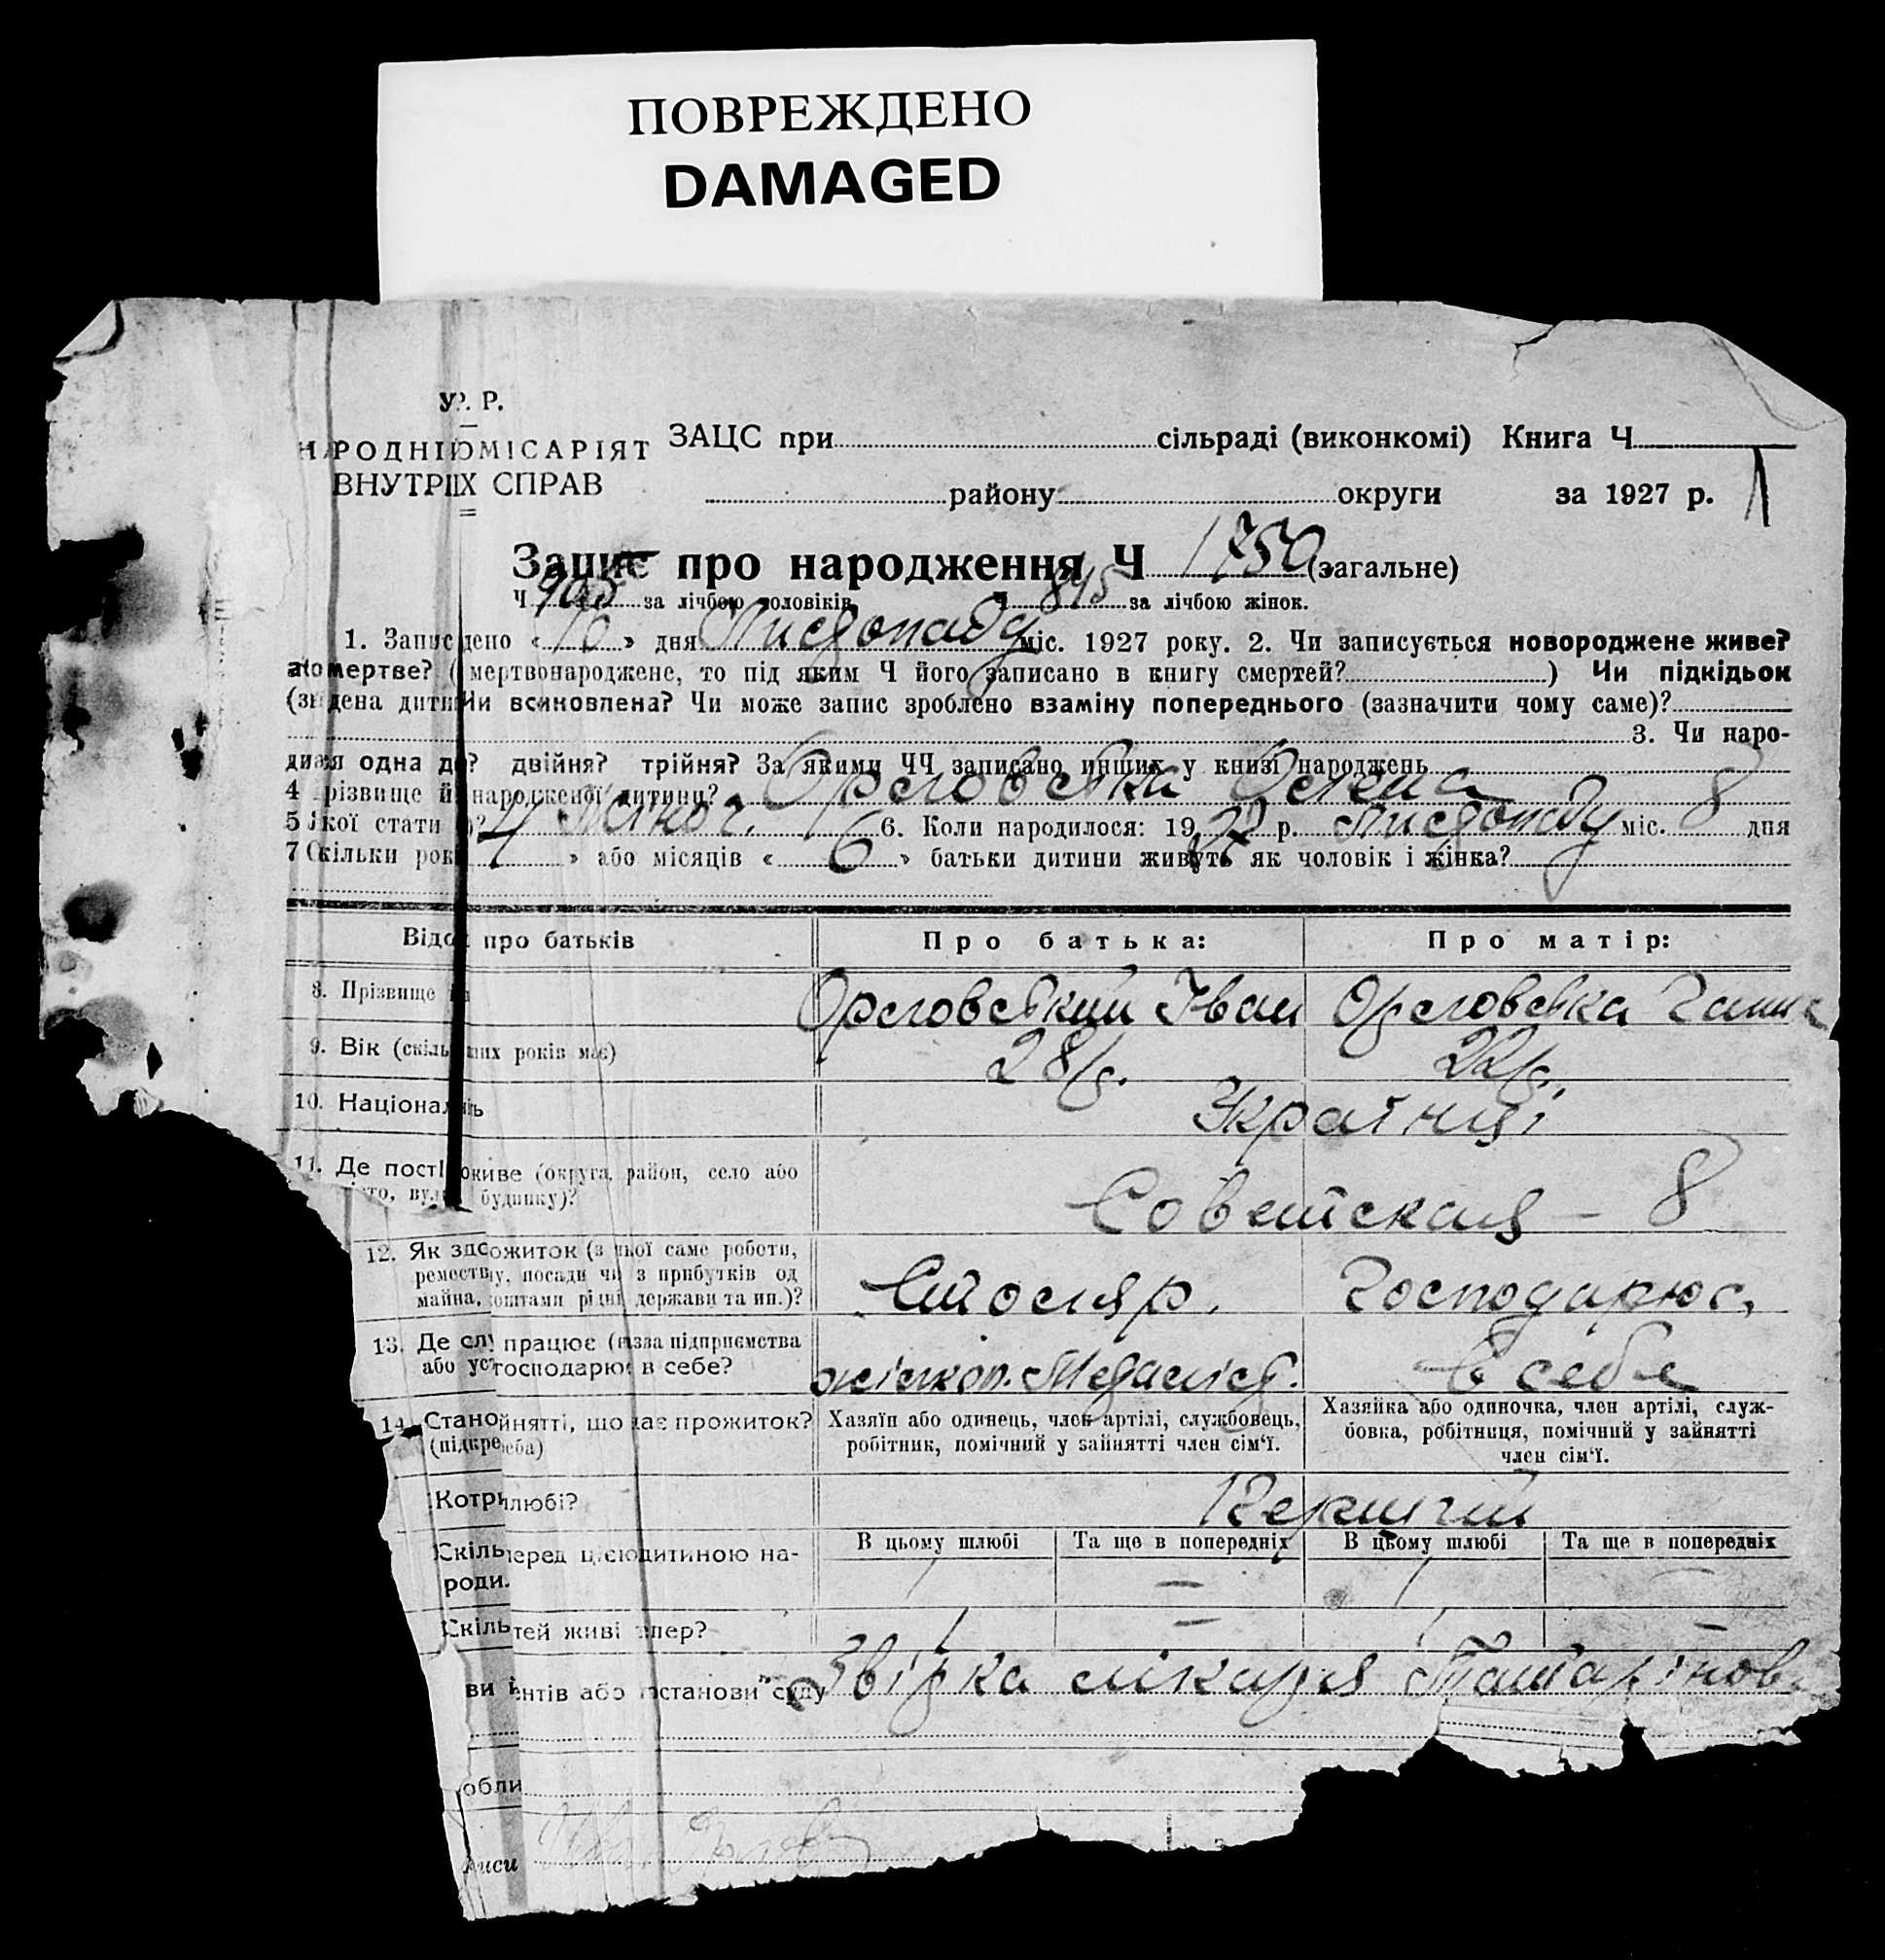 ПОВРЕЖДЕНО
DAMAGED
У. Р. Р.
ЗАЦС при сільраді (виконкомі) Книга Ч 1
ВНУТРІ Х СПРАВ
району округи за 1927 р.
Запис про народження Ч 1750 (загальне)
Ч 905 за лічбою чоловіків Ч 845 за лічбою жінок.
1. Запис дено «10» дня Листопаду міс. 1927 року. 2. Чи записується новороджене живе?
або мертве? ( мертвонароджене, то під яким Ч його записано в книгу смертей? ) Чи підкідьок
дена дити Чи всиновлена? Чи може запис зроблено взаміну попереднього (зазначити чому саме)?
3. Чи наро-
одна двійня? трійня? За якими ЧЧ записано инших у книзі народжень
4 прізвище й народженої дитини? Орловська Олена
5 Якої стати Жіноч. 6. Коли народилося: 1927 р. Листопаду міс. 8 дня
7 Скільки рок 4 » або місяців « 6 » батьки дитини живуть як чоловік і жінка?
Відо про батьків Про батька: Про матір:
8. Прізвище Орловський Іван Орловська Ганна
9. Вік (скіль них років має) 28 р. 22 р.
10. Націонал Українці
11. Де пості живе (округа, район, село або
вул будинку)? Советская – 8
12. Як здо ожиток (з якої саме роботи,
реместв у, посади чи з прибутків од
майна, коштами рідні, держави та ин.)? Столяр. Господарює,
13. Де слу працює (назва підприємства
або уст господарює в себе? житкоп. Медгаліст. в себе
14. Стано йнятті, що дає прожиток? Хазяїн або одинець, член артілі, службовець, Хазяйка або одиночка, член артілі, служ-
(підкре еба) робітник, помічний у зайнятті член сім'ї. бовка, робітниця, помічний у зайнятті
член сім'ї.
Котри любі? Первший
Скіль перед цією дитиною на- В цьому шлюбі Та ще в попередніх В цьому шлюбі Та ще в попередніх
роди 1 — 1 —
Скіль тей живі тепер? 1 — 1 —
ви ентів або постанови суду Звірка лікаря Татарінов
обли
писи